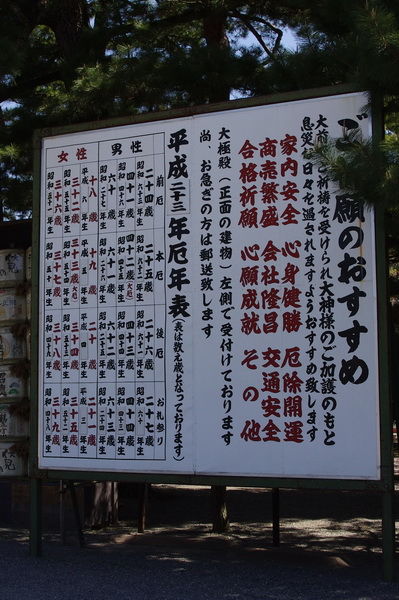 願のおすすめ
ご祈祷を受けられ大神様のご加護のもと
息災に日々を過されますようおすすめ致します
家内安全 心身健勝 厄除開運
商売繁盛 会社隆昌 交通安全
合格祈願 心願成就 その他
大極殿（正面の建物）左側で受付けております
尚、お急ぎの方は郵送致します
平成二十三年厄年表（表は数え歳となっております）
前厄 本厄 後厄 お礼参り
男性
二十四歳 二十五歳 二十六歳 二十七歳
昭和六十三年生 昭和六十二年生 昭和六十一年生 昭和六十年生
四十一歳 四十二歳（大厄） 四十三歳 四十四歳
昭和四十六年生 昭和四十五年生 昭和四十四年生 昭和四十三年生
六十歳 六十一歳 六十二歳 六十三歳
昭和二十七年生 昭和二十六年生 昭和二十五年生 昭和二十四年生
女性
十八歳 十九歳 二十歳 二十一歳
平成六年生 平成五年生 平成四年生 平成三年生
三十二歳 三十三歳（大厄） 三十四歳 三十五歳
昭和五十五年生 昭和五十四年生 昭和五十三年生 昭和五十二年生
三十六歳 三十七歳 三十八歳 三十九歳
昭和五十一年生 昭和五十年生 昭和四十九年生 昭和四十八年生